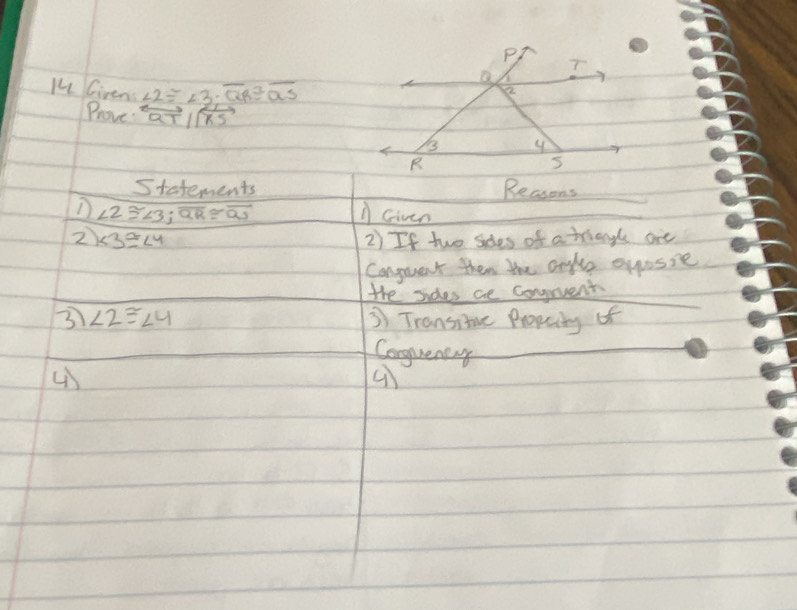 14 Given: ∠2 ≅ ∠3; QR ≅ QS
Prove: QT || RS
P
Q 1 T
2
3 4
R S
Statements Reasons
1) ∠2 ≅ ∠3; QR ≅ QS 1) Given
2) ∠3 ≅ ∠4 2) If two sides of a triangle are
Congruent then the angles opposite
the sides are Congruent.
3) ∠2 ≅ ∠4 3) Transitive Property of
Congruency
4) 4)